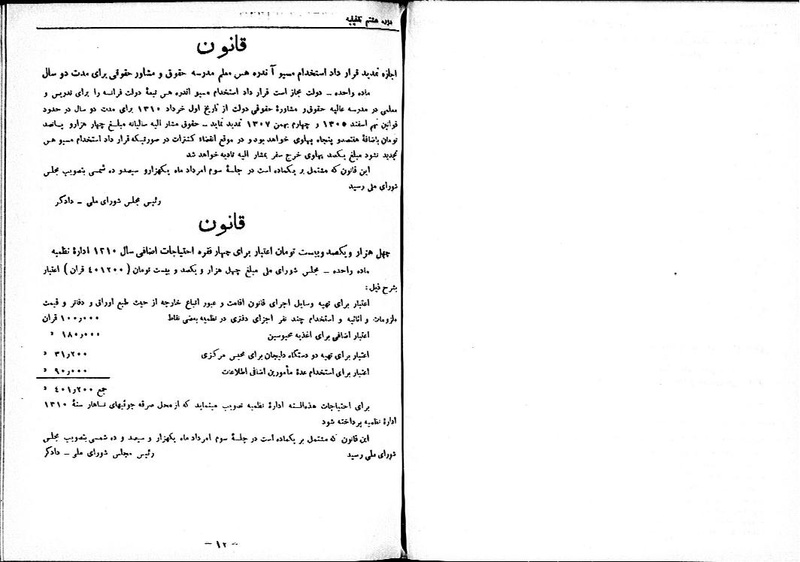 دوره هشتم تقنینیه
قانون
اجازه تمدید قرار داد استخدام مسیو آندره هس معلم مدرسه حقوق و مشاور حقوقی برای مدت دو سال
ماده واحده – دولت مجاز است قرار داد استخدام مسیو اندره هس تبعهٔ دولت فرانسه را برای تدریس و
معلمی در مدرسه عالیه حقوق و مشاورهٔ حقوقی دولت از تاریخ اول خرداد ۱۳۱۰ برای مدت دو سال در حدود
قوانین نهم اسفند ۱۳۰۵ و چهارم بهمن ۱۳۰۷ تمدید نماید – حقوق مشار الیه سالیانه مبلغ چهار هزار و پانصد
تومان باضافهٔ هفتصدو پنجاه پهلوی خواهد بود و در موقع انقضاء کنترات در صورتیکه قرار داد استخدام مسیو هس
تجدید نشود مبلغ یکصد پهلوی خرج سفر بمشار الیه تادیه خواهد شد
این قانون که مشتمل بر یکماده است در جلسهٔ سوم امرداد ماه یکهزارو سیصدو ده شمسی بتصویب مجلس
شورای ملی رسید
رئیس مجلس شورای ملی – دادگر
قانون
چهل هزار و یکصد و بیست تومان اعتبار برای چهار فقره احتیاجات اضافی سال ۱۳۱۰ ادارهٔ نظمیه
ماده واحده – مجلس شورای ملی مبلغ چهل هزار و یکصد و بیست تومان ( ۴۰۱۲۰۰ قران ) اعتبار
بشرح ذیل:
اعتبار برای تهیه وسایل اجرای قانون اقامت و عبور اتباع خارجه از حیث طبع اوراق و دفاتر و قیمت
ملزومات و اثاثیه و استخدام چند نفر اجزای دفتری در نظمیه بعضی نقاط ۱۰۰٫۰۰۰ قران
اعتبار اضافی برای اغذیه محبوسین ۱۸۰٫۰۰۰ »
اعتبار برای تهیه دو دستگاه دلیجان برای محبس مرکزی ۳۱٫۲۰۰ »
اعتبار برای استخدام عدهٔ مأمورین اضافی اطلاعات ۹۰٫۰۰۰ »
جمع ۴۰۱٫۲۰۰ »
برای احتیاجات هذه‌السنه ادارهٔ نظمیه تصویب مینماید که از محل صرفه جوئیهای ششماهه سنهٔ ۱۳۱۰
ادارهٔ نظمیه پرداخته شود
این قانون که مشتمل بر یکماده است در جلسهٔ سوم امرداد ماه یکهزار و سیصد و ده شمسی بتصویب مجلس
شورای ملی رسید رئیس مجلس شورای ملی – دادگر
– ۱۲ –